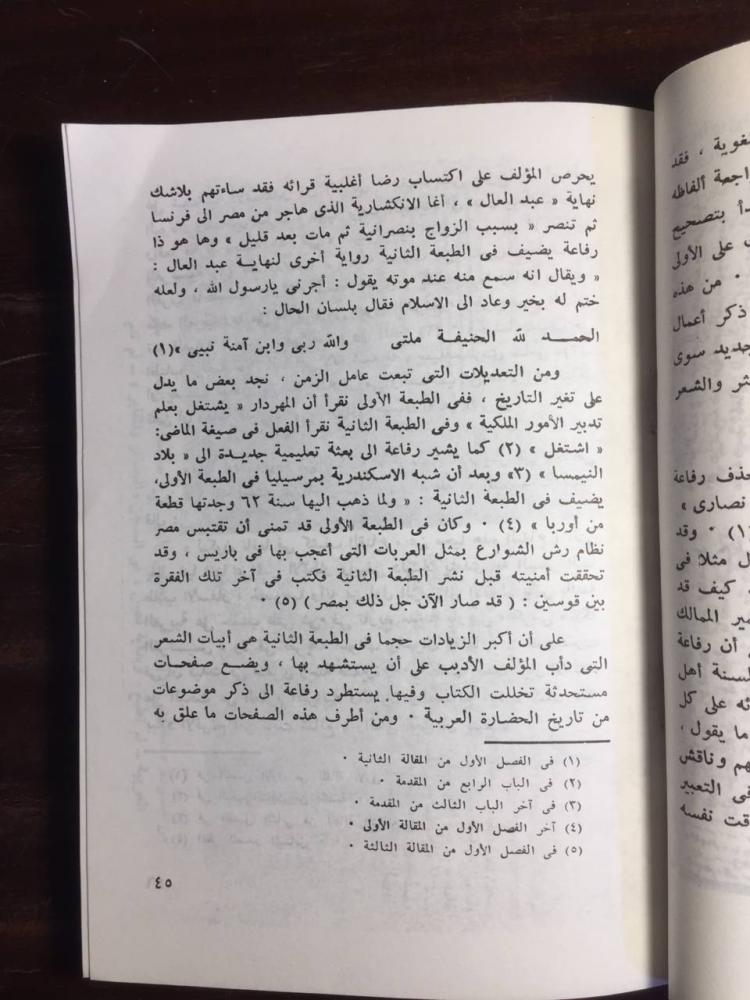 يحرص المؤلف على اكتساب رضا أغلبية قرائه فقد ساءتهم بلاشك
نهاية « عبد العال » ، أغا الانكشارية الذى هاجر من مصر الى فرنسا
ثم تنصر « بسبب الزواج بنصرانية ثم مات بعد قليل » وها هو ذا
رفاعة يضيف فى الطبعة الثانية رواية أخرى لنهاية عبد العال :
« ويقال انه سمع منه عند موته يقول : أجرنى يارسول الله ، ولعله
ختم له بخير وعاد الى الاسلام فقال بلسان الحال :
الحمد لله الحنيفة ملتى والله ربى وابن آمنة نبيى »(١)
ومن التعديلات التى تبعت عامل الزمن ، نجد بعض ما يدل
على تغير التاريخ ، ففى الطبعة الأولى نقرأ أن المهردار « يشتغل بعلم
تدبير الأمور الملكية » وفى الطبعة الثانية نقرأ الفعل فى صيغة الماضى:
« اشتغل » (٢) كما يشير رفاعة الى بعثة تعليمية جديدة الى « بلاد
النيمسا » (٣) وبعد أن شبه الاسكندرية بمرسيليا فى الطبعة الأولى،
يضيف فى الطبعة الثانية : « ولما ذهب اليها سنة ٦٢ وجدتها قطعة
من أوربا » (٤) ٠ وكان فى الطبعة الأولى قد تمنى أن تقتبس مصر
نظام رش الشوارع بمثل العربات التى أعجب بها فى باريس ، وقد
تحققت أمنيته قبل نشر الطبعة الثانية فكتب فى آخر تلك الفقرة
بين قوسين : ( قد صار الآن جل ذلك بمصر ) (٥) ٠
على أن أكبر الزيادات حجما فى الطبعة الثانية هى أبيات الشعر
التى دأب المؤلف الأديب على أن يستشهد بها ، ويضع صفحات
مستحدثة تخللت الكتاب وفيها يستطرد رفاعة الى ذكر موضوعات
من تاريخ الحضارة العربية ٠ ومن أطرف هذه الصفحات ما علق به
(١) فى الفصل الأول من المقالة الثانية ٠
(٢) فى الباب الرابع من المقدمة ٠
(٣) فى آخر الباب الثالث من المقدمة ٠
(٤) آخر الفصل الأول من المقالة الأولى ٠
(٥) فى الفصل الأول من المقالة الثالثة ٠
٤٥
فقد
ألفاظه
بتصحيح
على الأولى
من هذه
ذكر أعمال
جديد سوى
والشعر
رفاعة
نصارى »
(١) ٠ وقد
مثلا فى
كيف قد
الممالك
أن رفاعة
أهل
على كل
ما يقول ،
وناقش
فى التعبير
نفسه